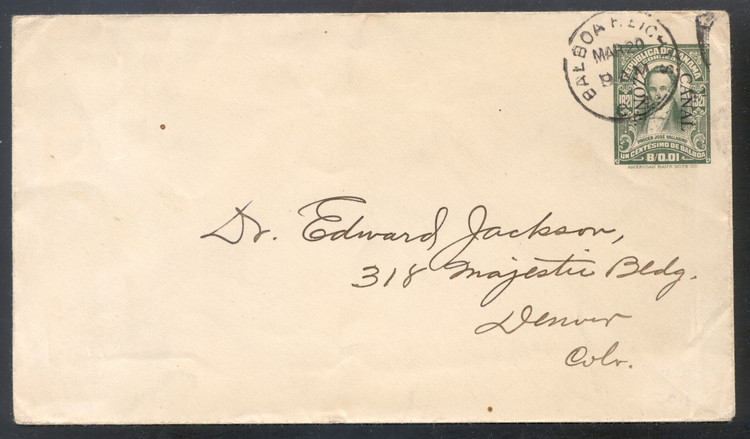 BALBOA HEIGH
MAR 20
REPUBLICA DE PANAMA
CORREOS
CANAL
ZONE
1821
1921
JOSE VALLARINO
UN CENTÉSIMO DE BALBOA
B/0.01
AMERICAN BANK NOTE CO.
Dr. Edward Jackson,
318 Majestic Bldg.
Denver
Colo.